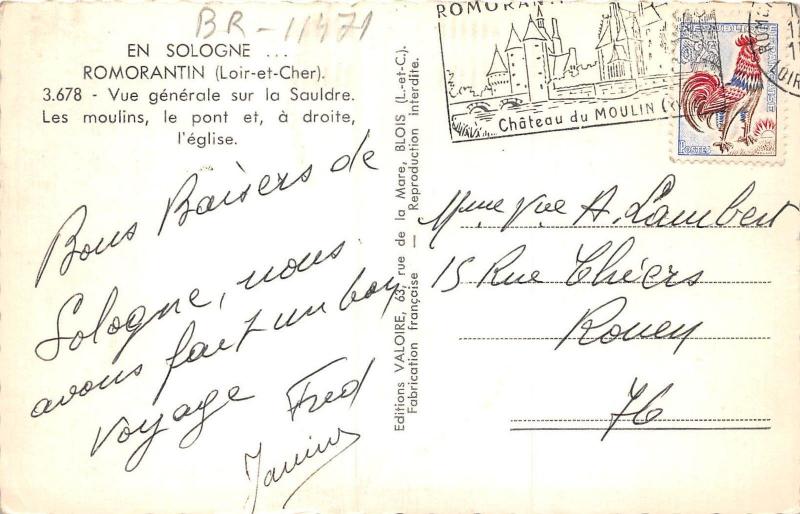 BR-11471
EN SOLOGNE ...
ROMORANTIN (Loir-et-Cher).
3.678 - Vue générale sur la Sauldre.
Les moulins, le pont et, à droite,
l'église.
Bons Baisers de
Sologne, nous
avons fait un bon
voyage Fred
Janine
Editions VALOIRE, 63, rue de la Mare, BLOIS (L.-et-C.).
Fabrication française — Reproduction interdite.
ROMORANTI
Château du MOULIN (X
POSTES
LOIR
Mme Vve A. Lambert
15 Rue Thiers
Rouen
76